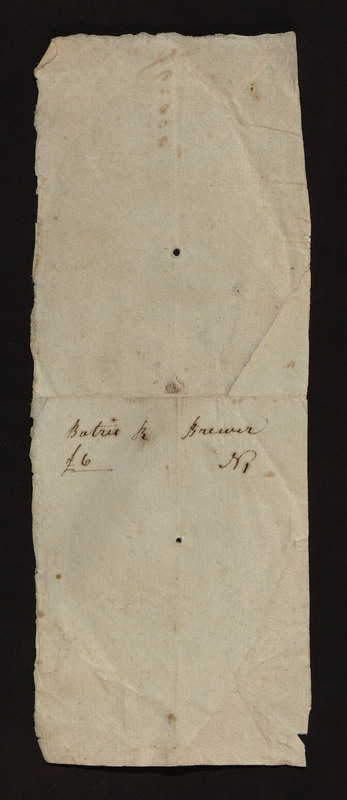 Batrie & Brewer
£6 N1